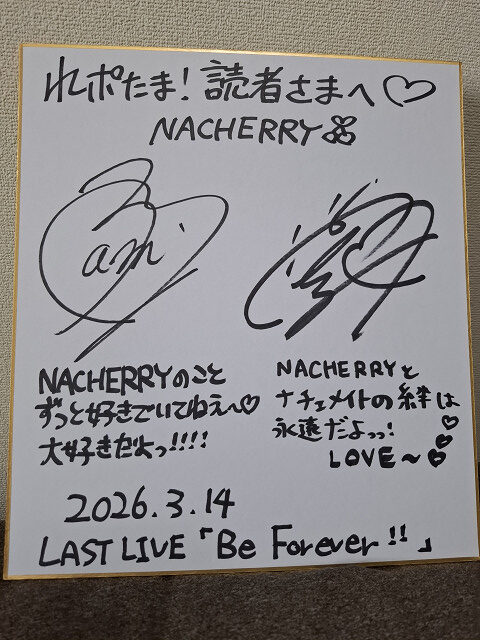 れポたま！読者さまへ♡
NACHERRY
am
NACHERRYのこと
ずっと好きでいてねえ〜♡
大好きだよっ!!!!
NACHERRYと
ナチェメイトの絆は
永遠だよっっ!
LOVE〜
2026.3.14
LAST LIVE「Be Forever!!」